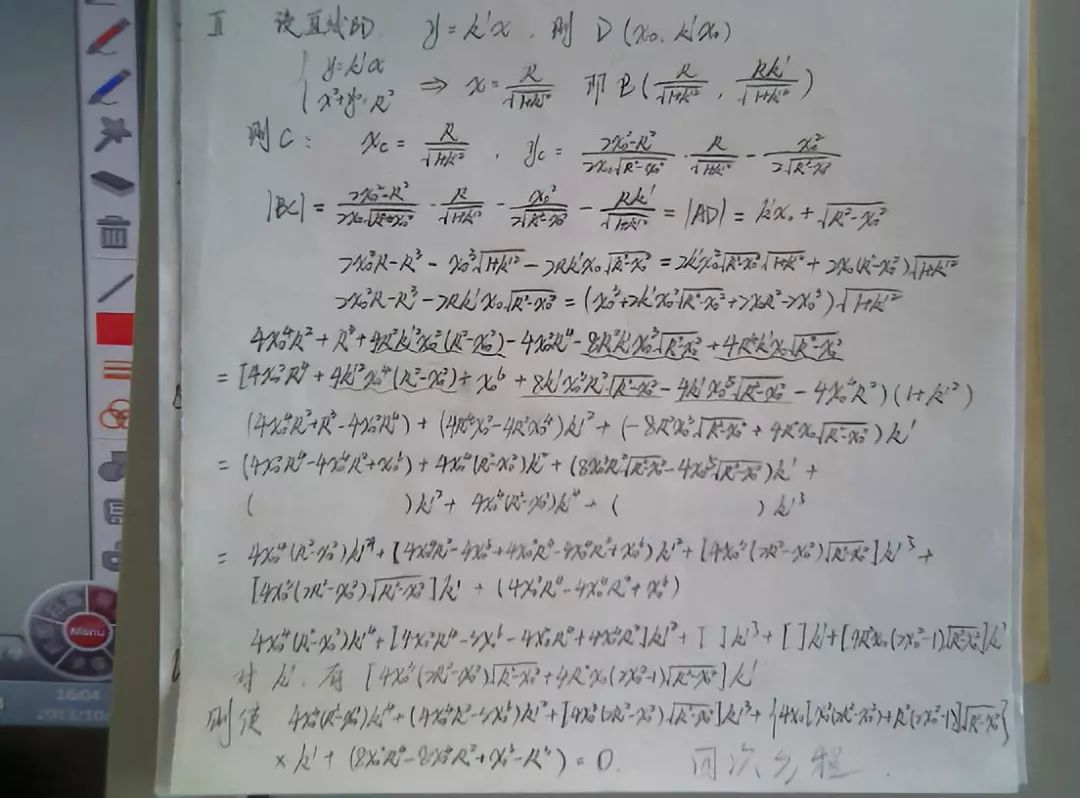 II 设直线BD. y=k'x, 则 D(x₀, k'x₀)
{ y=k'x
x²+y²=R² ⇒ x=R/√(1+k'²) 即 B(R/√(1+k'²), Rk'/√(1+k'²))
则C: x_C = R/√(1+k'²), y_C = (2x₀²-R²)/(2x₀√(R²-x₀²)) · R/√(1+k'²) - x₀²/(2√(R²-x₀²))
|BC| = (2x₀²-R²)/(2x₀√(R²-x₀²)) · R/√(1+k'²) - x₀²/(2√(R²-x₀²)) - Rk'/√(1+k'²) = |AD| = k'x₀ + √(R²-x₀²)
2x₀²R-R³-x₀³√(1+k'²)-2Rk'x₀√(R²-x₀²) = 2k'x₀²√(R²-x₀²)√(1+k'²)+2x₀(R²-x₀²)√(1+k'²)
2x₀²R-R³-2Rk'x₀√(R²-x₀²) = (x₀³+2k'x₀²√(R²-x₀²)+2x₀R²-2x₀³)√(1+k'²)
4x₀⁴R²+R³+4R²k'²x₀²(R²-x₀²)-4x₀²R⁴-8R²k'x₀³√(R²-x₀²)+4R⁴k'x₀√(R²-x₀²)
=[4x₀²R⁴+4k'²x₀⁴(R²-x₀²)+x₀⁶+8k'x₀³R²√(R²-x₀²)-4k'x₀⁵√(R²-x₀²)-4x₀⁴R²)(1+k'²)
(4x₀⁴R²+R³-4x₀²R⁴)+(4R⁴x₀²-4R²x₀⁴)k'²+(-8R²x₀³√(R²-x₀²)+4R⁴x₀√(R²-x₀²))k'
=(4x₀²R⁴-4x₀⁴R²+x₀⁶)+4x₀⁴(R²-x₀²)k'²+(8x₀³R²√(R²-x₀²)-4x₀⁵√(R²-x₀²))k'+
( )k'²+4x₀⁴(R²-x₀²)k'⁴+( )k'³
=4x₀⁴(R²-x₀²)k'⁴+[4x₀⁴R²-4x₀⁶+4x₀²R⁴-4x₀⁴R²+x₀⁶)k'²+[4x₀³(2R²-x₀²)√(R²-x₀²)]k'³+
[4x₀³(2R²-x₀²)√(R²-x₀²)]k'+(4x₀²R⁴-4x₀⁴R²+x₀⁶)
4x₀⁴(R²-x₀²)k'⁴+[4x₀²R⁴-3x₀⁶-4x₀²R⁴+4x₀⁴R²]k'²+[ ]k'³+[ ]k'+[4R²x₀(2x₀²-1)√(R²-x₀²)]k'
对k'. 有 [4x₀³(2R²-x₀²)√(R²-x₀²)+4R²x₀(2x₀²-1)√(R²-x₀²)]k'
则使 4x₀⁴(R²-x₀²)k'⁴+(4x₀⁴R²-3x₀⁶)k'²+[4x₀³(2R²-x₀²)√(R²-x₀²)]k'³+{4x₀[x₀²(2R²-x₀²)+R²(2x₀²-1)]√(R²-x₀²)}
×k'+(8x₀²R⁴-8x₀⁴R²+x₀⁶-R⁴)=0. 四次方程.
Menu
16:04